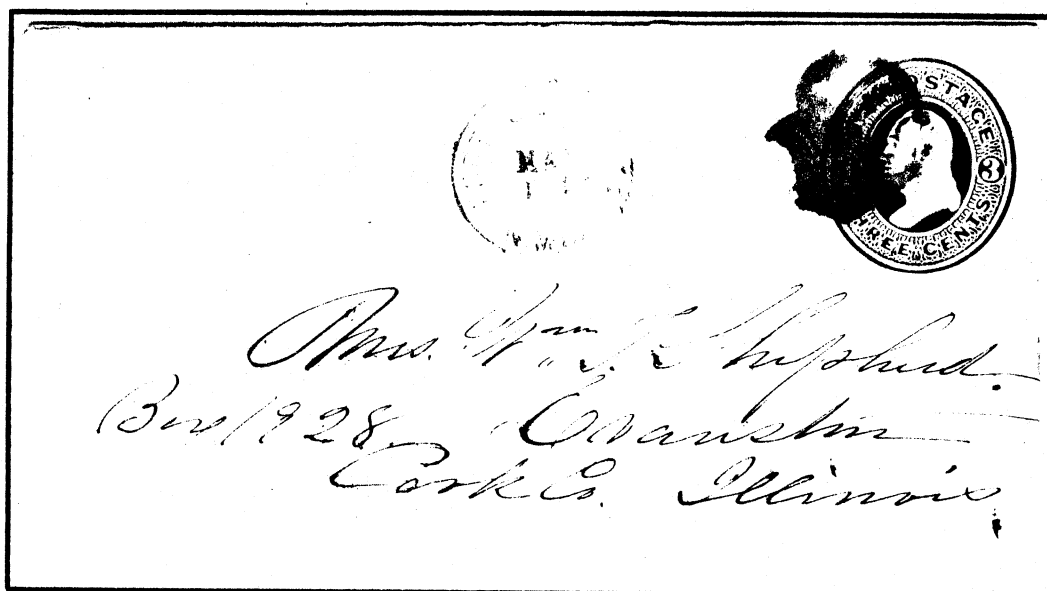 POSTAGE
3
THREE CENTS
MA
Mrs. Wm. Shepherd.
Box 1928 Evanston
Cook Co. Illinois